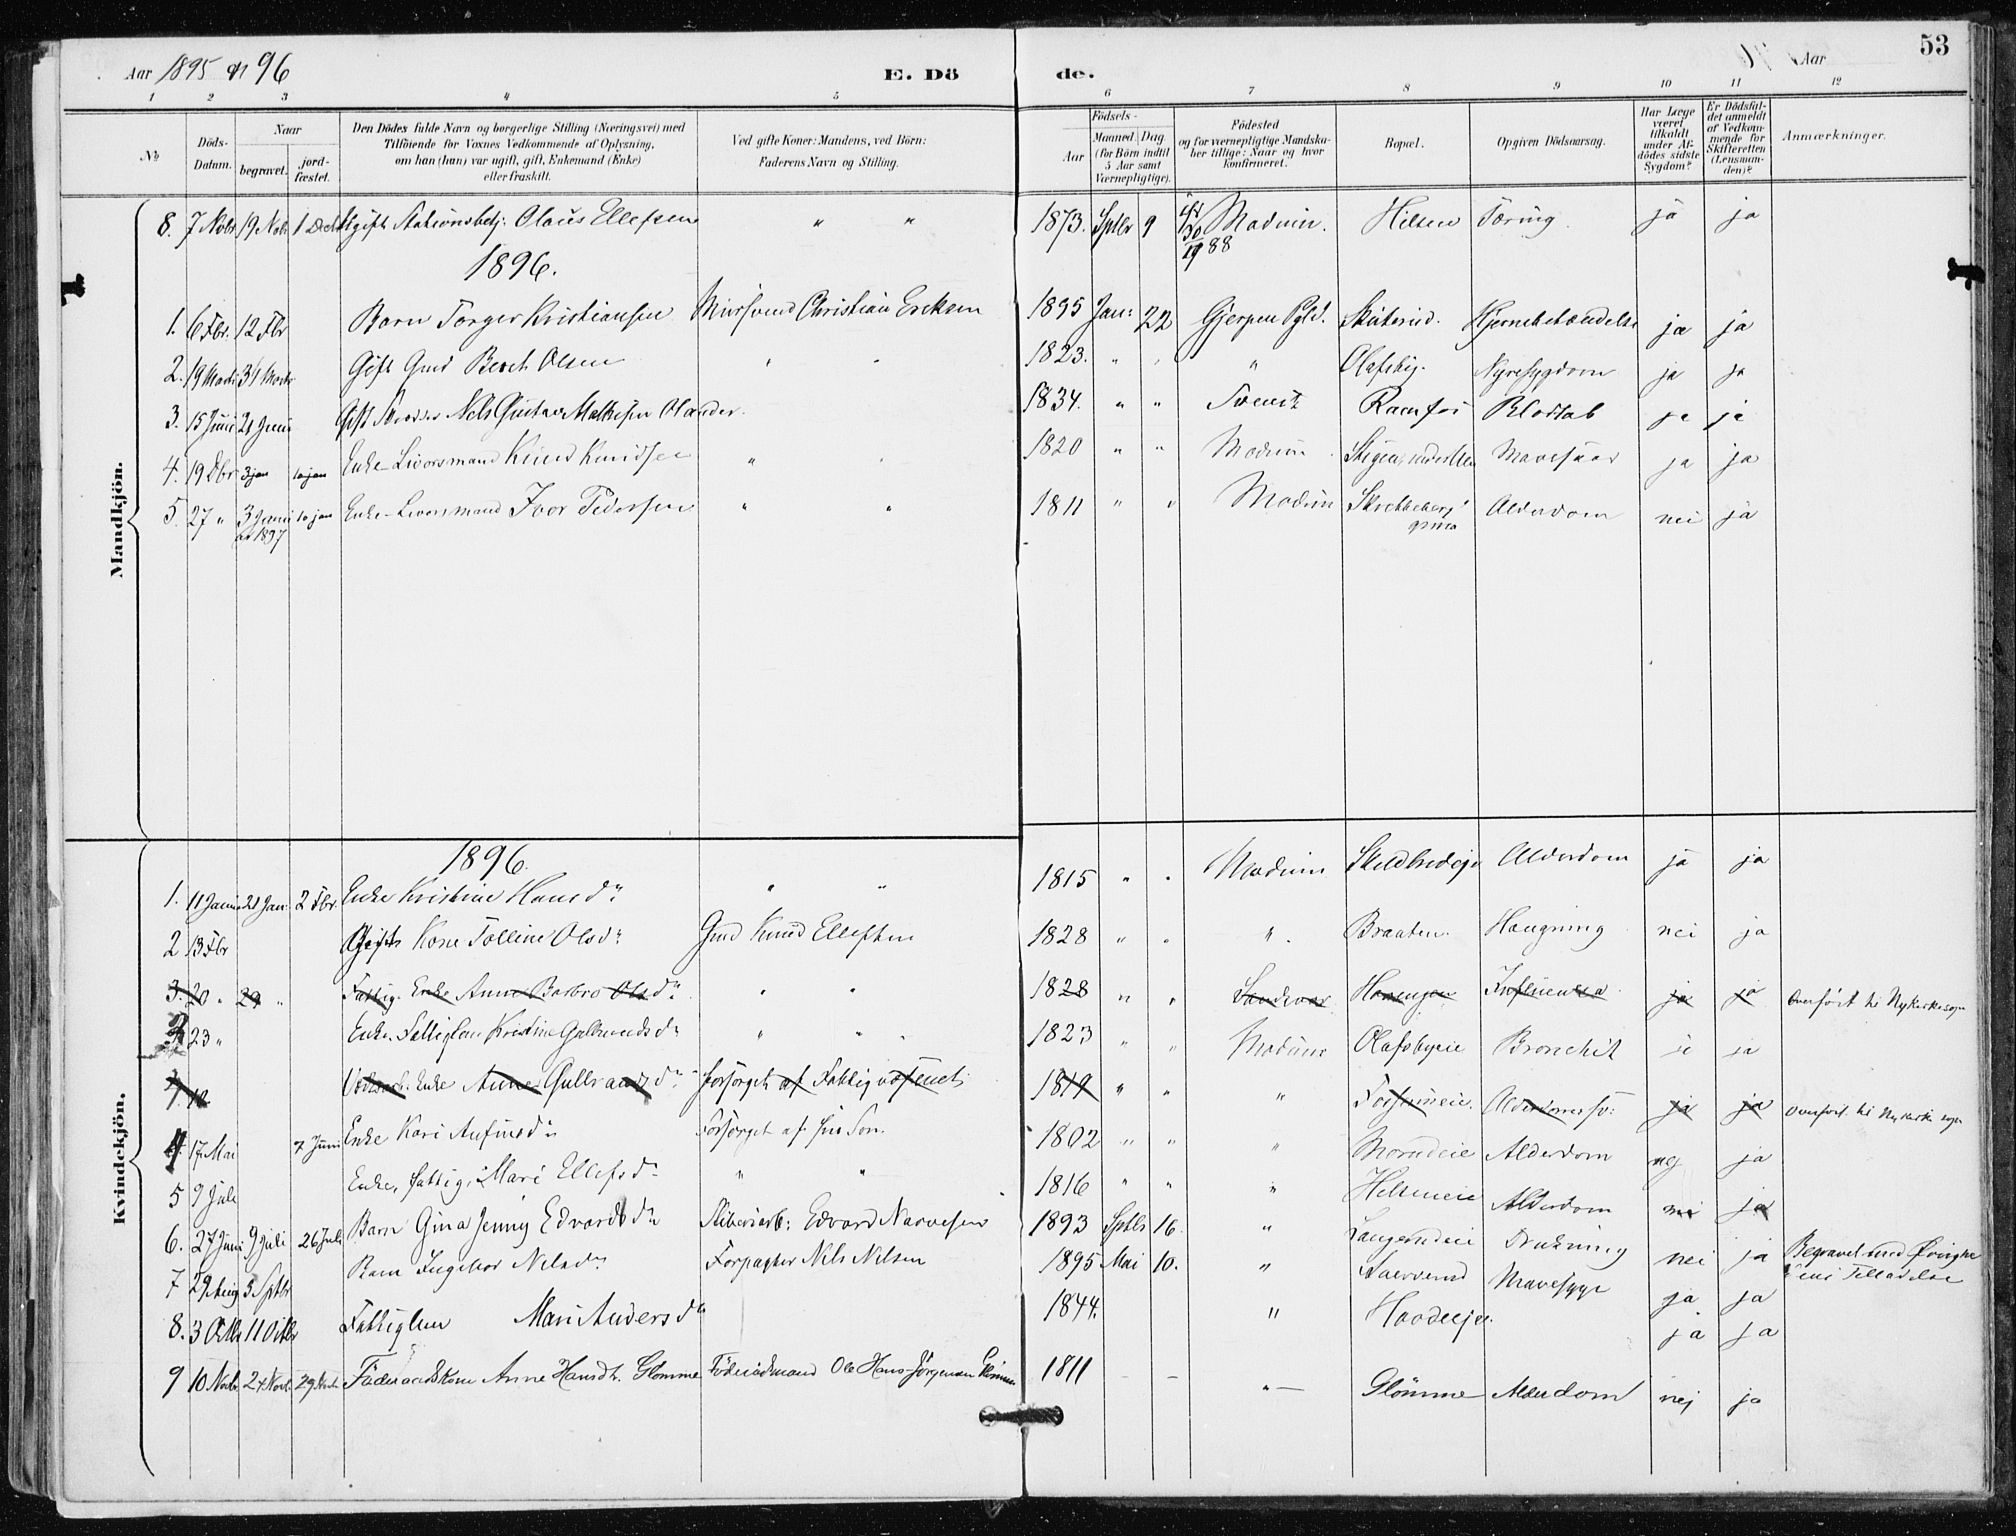 Aar 1895 og 96 E. Dö de. Aar 53
1 2 3 4 5 6 7 8 9 10 11 12
№ Döds-Datum. Naar begravet. jord-fæstet. Den Dödes fulde Navn og borgerlige Stilling (Næringsvei) med Tilföiende for Voxnes Vedkommende af Oplysning, om han (hun) var ugift, gift, Enkemand (Enke) eller fraskilt. Ved gifte Koner: Mandens, ved Börn: Faderens Navn og Stilling. Födsels- Aar Maaned. Dag. (for Börn indtil 5 Aar samt Værnepligtige). Födested og for værnepligtige Mandskaber tillige: Naar og hvor konfirmeret. Bopæl. Opgiven Dödsaarsag. Har Læge været tilkaldt under Afdödes sidste Sygdom? Er Dödsfaldet anmeldt af Vedkommende for Skifteretten (Lensmanden)? Anmærkninger.
Mandkjön.
8. 7 Novbr 19 Nov. 1 Dec Ugift Stationsbetj. Olaus Ellefsen " " 1873. Sptbr 9 Modum. Hilsen Tæring ja ja
1896.
1. 6 Fbr. 12 Fbr Barn Torger Kristiansen Mursvend Christian Eriksen 1895 Jan: 22 Gjerpen Pgld. Skuterud. Hjernebetændelse ja ja
2. 19 Marts 31 Marts Gift Gmd Bernt Olsen " " 1823. " " " Olafsby. Nyresygdom ja ja
3. 15 Juni 21 Juni Gift Nels Gustav Mathesen Olander. 1834. " " Svensk Ramfos Blodtab ja ja
4. 19 Dbr 3 jan 10 jan Enke-Livorsmand Knud Knudsen " " 1820 " " Modum Mavesaar ja ja
5. 27 " 3 Januar 1897 10 jan Enke-Livorsmand Ivar Pedersen " " 1811 " " Modum Skrebbeberg Alderdom nei ja
Kvindekjön.
1896.
1. 11 Janu 21 Jan. 2 Fbr. Enke Kristine Hansd. " " 1815 " " Modum Skildbredeje Alderdom ja ja
2 13 Fbr Gift Kone Tolline Olsd. Gmd Knud Ellefsen 1828 " " ". Braaten. Hængning nei ja
3. 20 " 29 " Fattig. Enke Anne Barbro Olsd. " " 1828 " " Sandsvær Influensa ja ja Overført til Nykirkesogn
3 23 " Enke. Fattiglem Kristine Gulbrandsd. " " 1823 " " Modum Olafsbyeie Bronchit ja ja
4. 10 Enke Anne Gulbrandsd. forsørget af Fattigvæsenet 1819 " " " Alderdomssv: ja ja Overført til Nykirke sogn
4 17 Mai 7 Juni Enke Kari Anfinsd. Forsørget af sin Søn. 1802 " " " Alderdom nej ja
5 9 Juli Enke, fattig, Mari Ellefsd. " " 1816 " " " Hilseneie Alderdom nei ja
6. 27 Juni 9 Juli 26 Juli Barn Gina Jenny Edvardsd. Sliberiarb: Edvard Narvesen 1893 Sptbr 16. " Langerudeie Drukning nei ja Begravet med Øvrighedens Tilladelse
7 29 Aug 5 Sptbr Barn Ingebor Nelsd. Forpagter Nils Nilsen 1895 Mai 10. " Mavesyge ja ja
8. 3 Oktbr 11 Oktbr Fattiglem Mari Andersd. 1844. " Haadeeje. ja ja
9 10 Novbr. 24 Novb. 29 Novb Föderaadskone Anne Hansdt. Glomme Föderaadmand Ole Hans Jörgensen Glomme 1811 – – " Glömme Alderdom nej ja